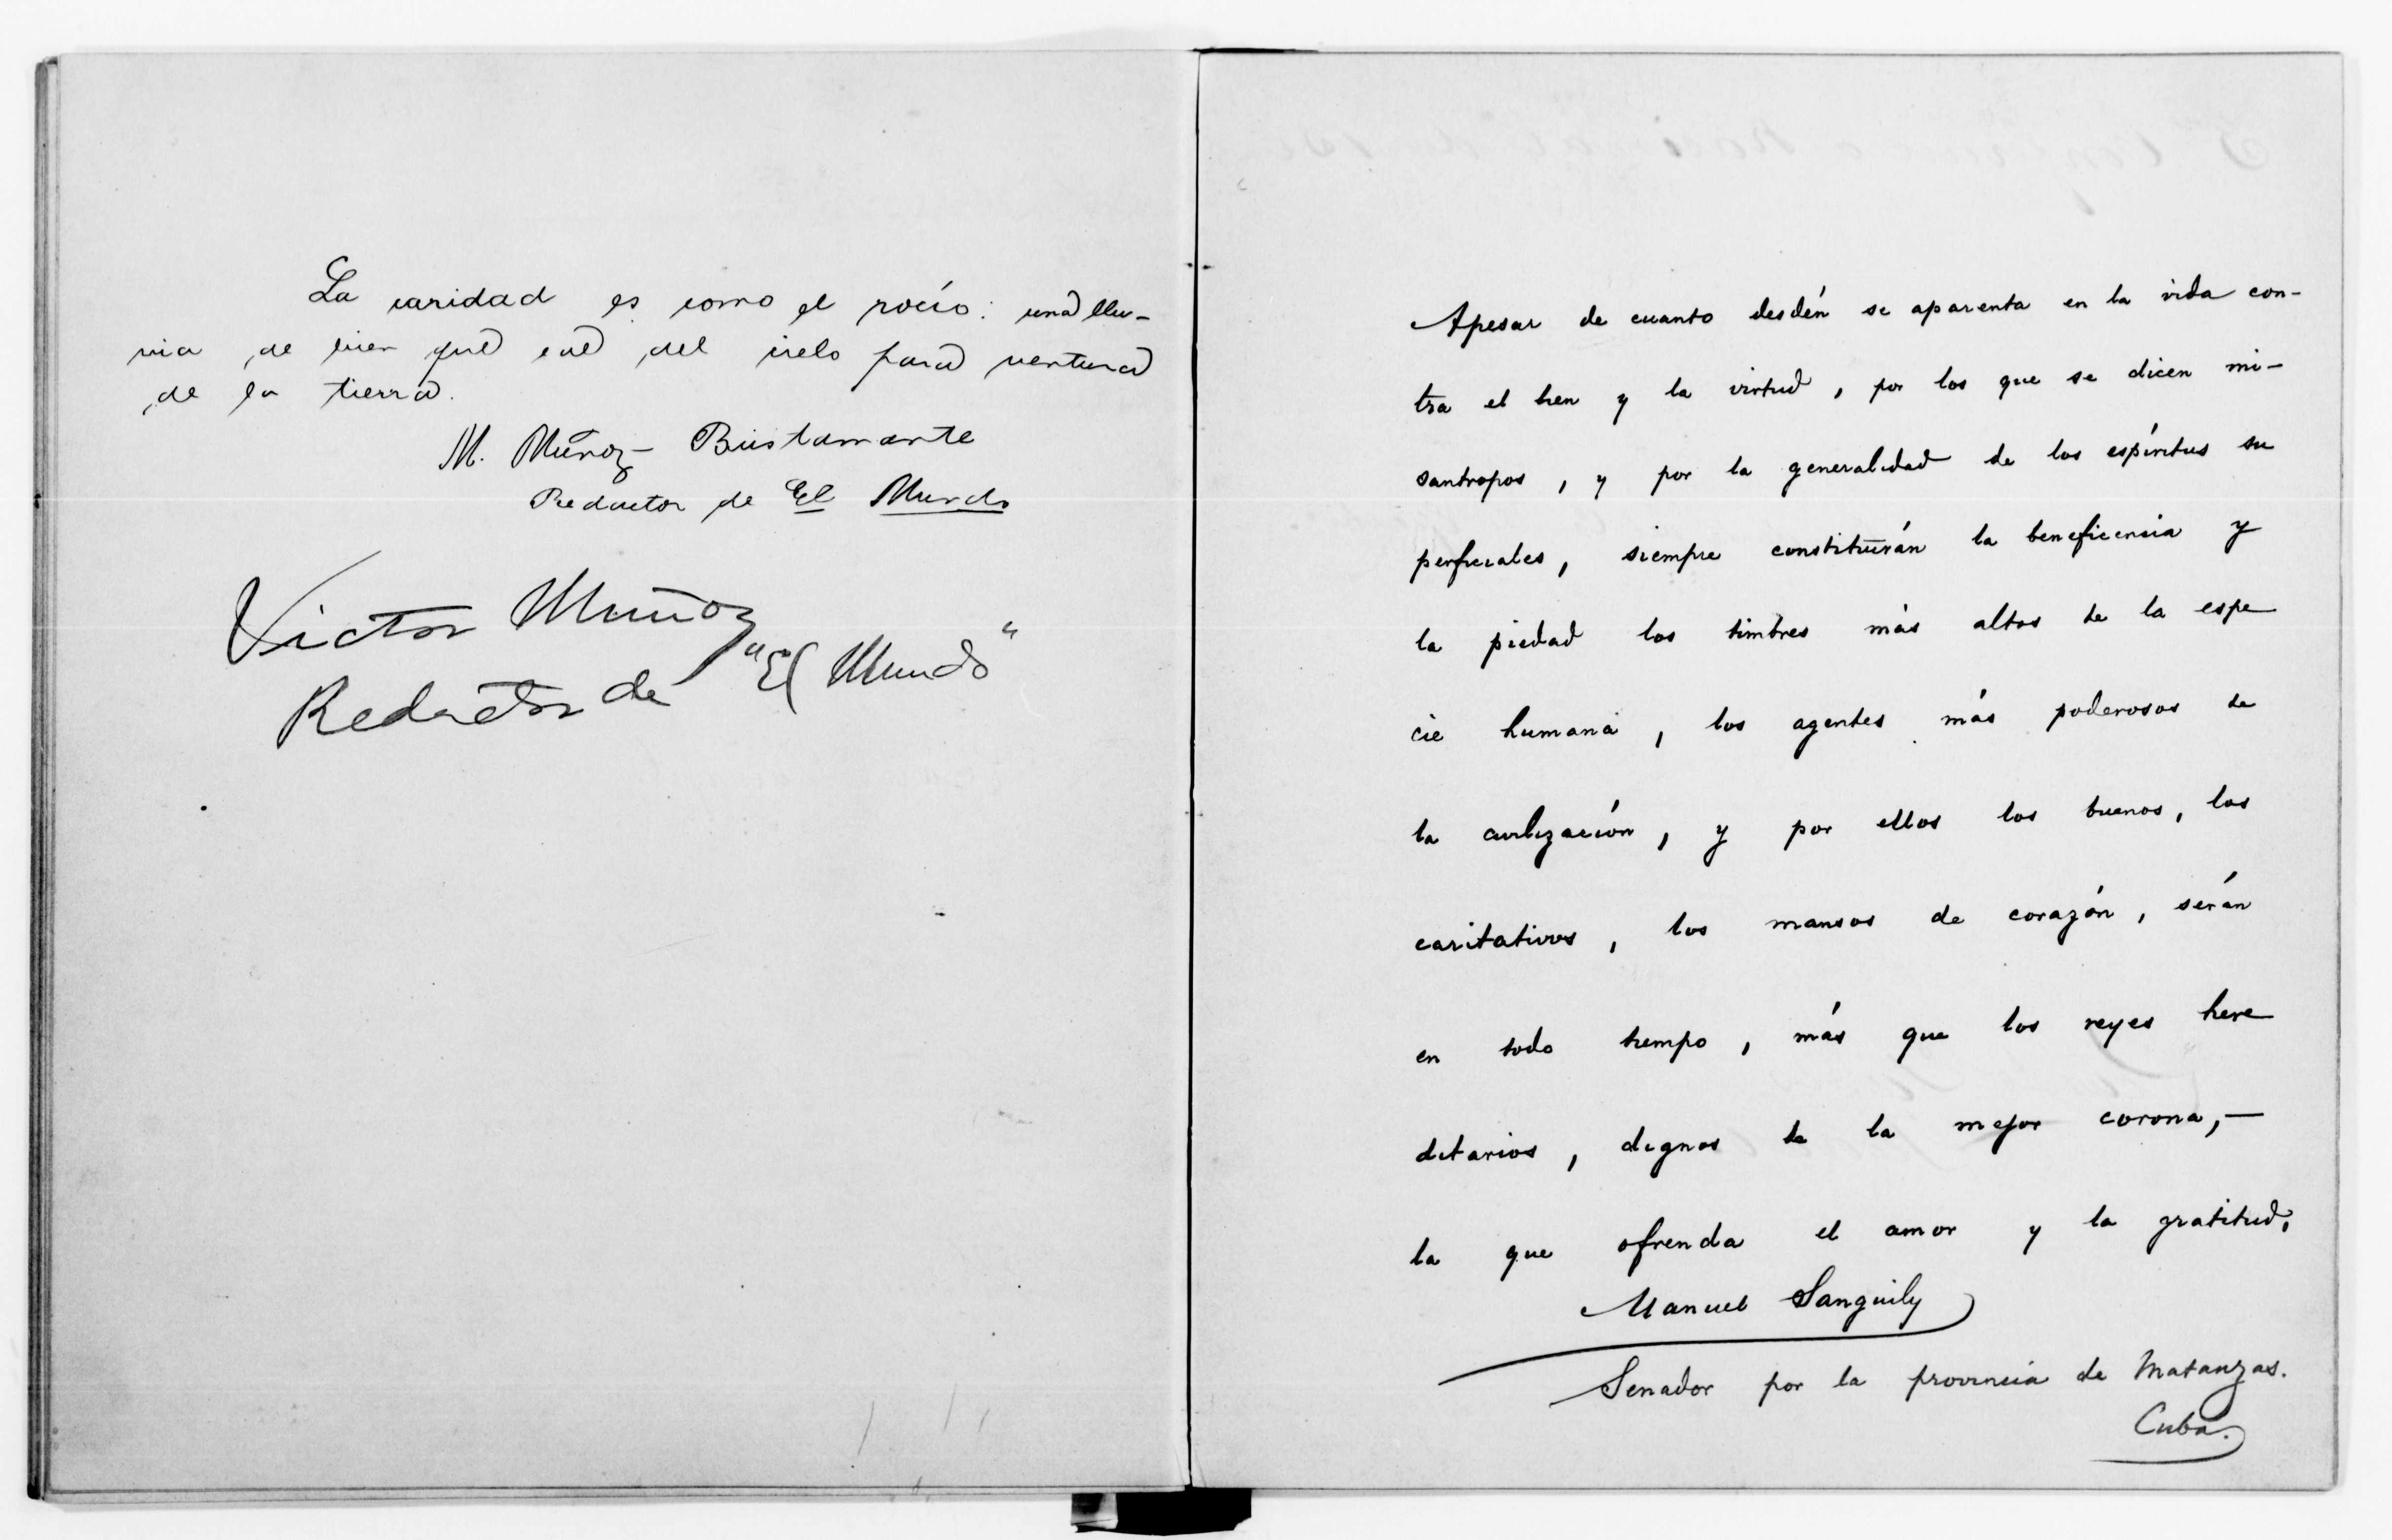 La caridad es como el rocío: una llu-
via de bien que cae del cielo para ventura
de la tierra.
M. Muñoz-Bustamante
Redactor de El Mundo
Victor Muñoz
Redactor de "El Mundo"
Apesar de cuanto desdén se aparenta en la vida con-
tra el bien y la virtud, por los que se dicen mi-
santropos, y por la generalidad de los espíritus su
perficiales, siempre constituirán la beneficencia y
la piedad los timbres más altos de la espe
cie humana, los agentes más poderosos de
la civilización, y por ellos los buenos, los
caritativos, los mansos de corazón, serán
en todo tiempo, más que los reyes here
ditarios, dignos de la mejor corona,—
la que ofrenda el amor y la gratitud.
Manuel Sanguily
Senador por la provincia de Matanzas.
Cuba.